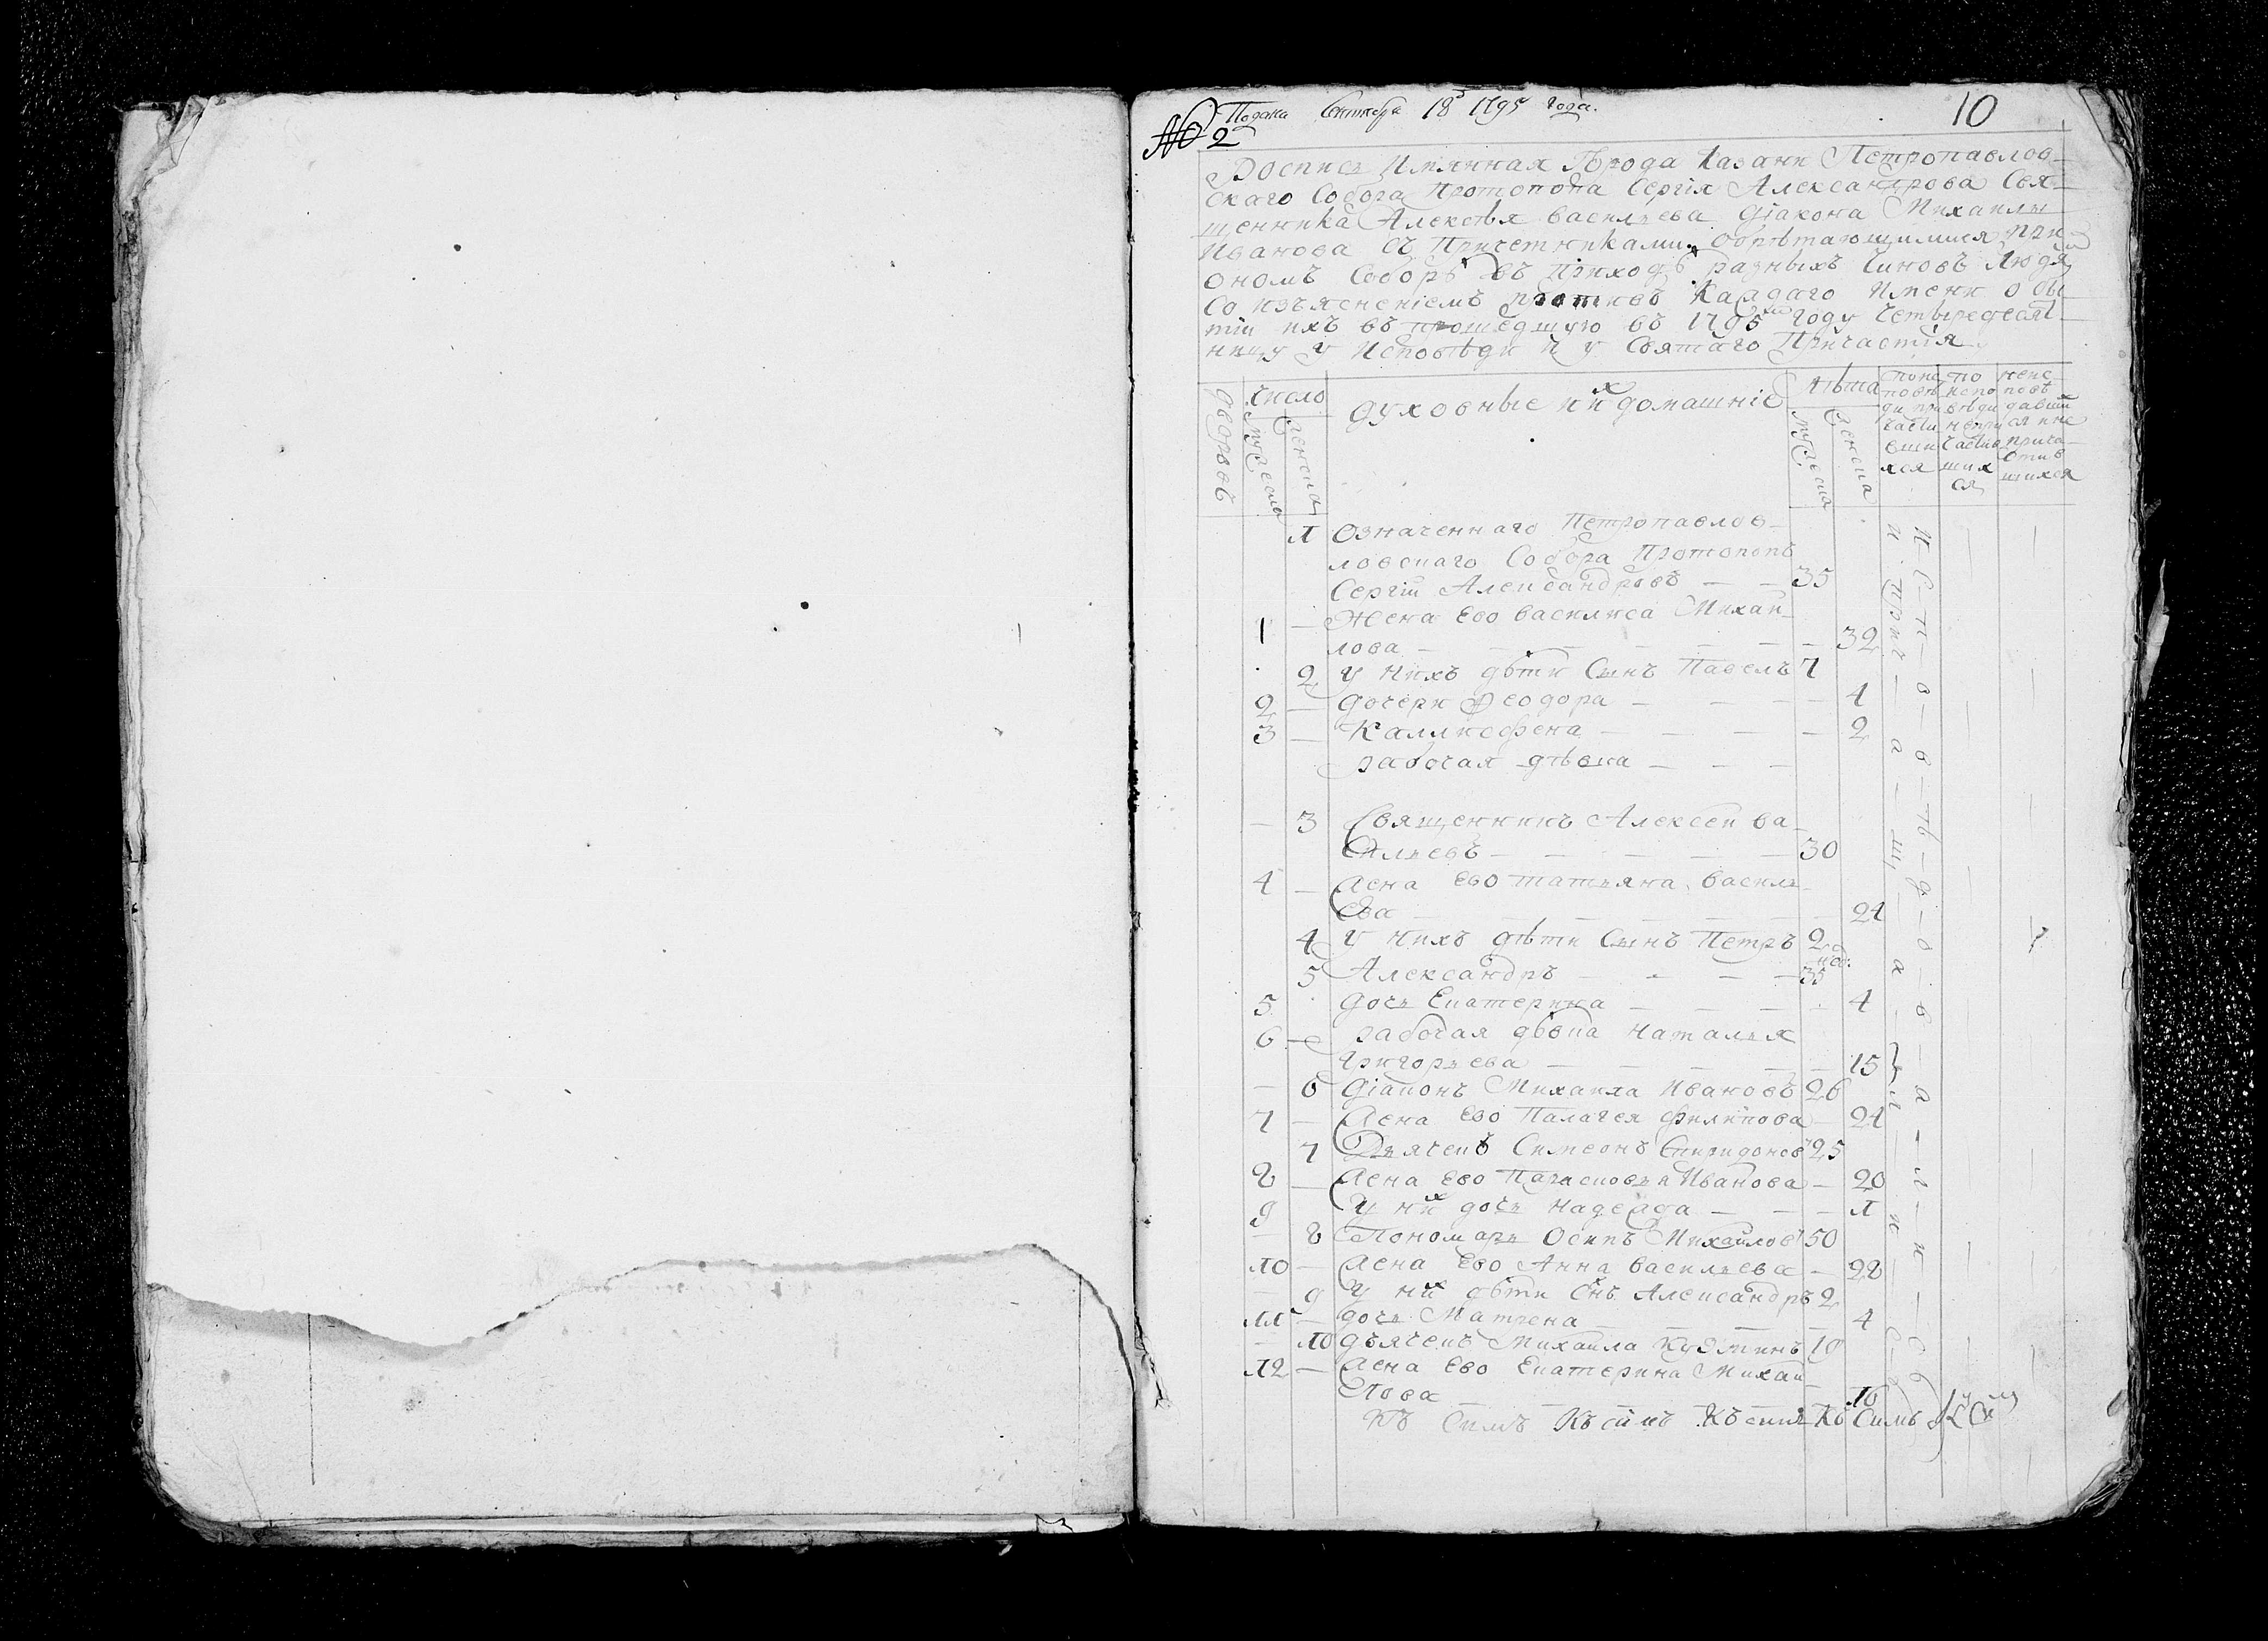 Подана Сентября 18 1795 года.
10
№ 2
Роспись Имянная Города Казани Петропавлов-
скаго Собора Протопопа Сергія Александрова Свя-
щенника Алексѣя Васильева Діакона Михаилы
Иванова съ Причетниками обрѣтающимися при
ономъ Соборѣ въ приходѣ разныхъ чиновъ людѣй
Со изъясненіемъ противъ каждаго Имени о бы
тіи ихъ въ прошедшую въ 1795м году Четыредесят-
ницу у Исповѣди и у Святаго Причастія.
дворовъ
число
мужеска
женска
духовные и их домашніе
лѣта
мужеска
женска
1 Означеннаго Петропавлов-
ловскаго Собора Протопопъ
Сергіи Александровъ — — 35
1 — Жена Ево василиса Михаи
лова — — 32
2 У Нихъ дѣти Сынъ Павелъ 7
2 — дочери Феодора — — 4
3 — Каллисфена — — 2
рабочая дѣвка — — —
— 3 Священникъ Алексеи ва
сильевъ — — 30
4 — жена Ево татьяна василь
ева — — 24
4 У нихъ дѣти Сынъ Петръ 2
5 Александръ — —
5 дочь Екатерина — — 4
6 — рабочая дѣвка Наталья
григорьева — — 15
— 6 діаконъ Михаила Ивановъ 26
7 — жена Ево Палагея филипова — 24
7 Дьячекъ Симеонъ Спиридоновъ 25
8 — жена Ево Парасковья Иванова — 20
9 У них дочь надежда — — 1
— 8 Пономарь Осипъ Михайловъ 50
10 — жена Ево Анна васильева — 28
— 9 У них дѣти Снъ Александръ 2
11 — дочь Матрена — — 4
— 10 дьячекъ Михаила Кузминъ 19
12 — жена Ево Екатерина Михаи
лова — 18
Къ Симъ Къ симъ Къ симъ Къ Симъ
И-с-п-о-в-ѣ-д-о-в-а-л-и-с-ь